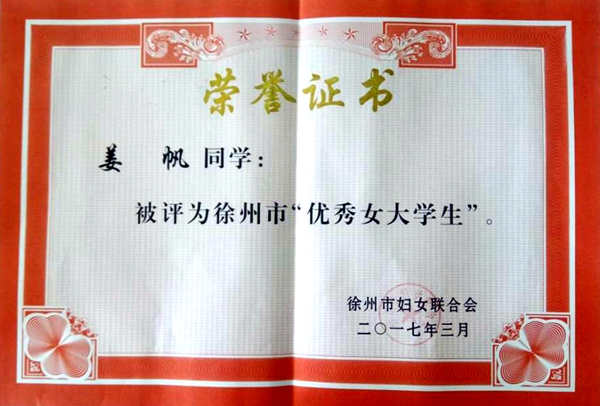 荣誉证书
姜 帆 同学：
被评为徐州市“优秀女大学生”。
徐州市妇女联合会
二〇一七年三月